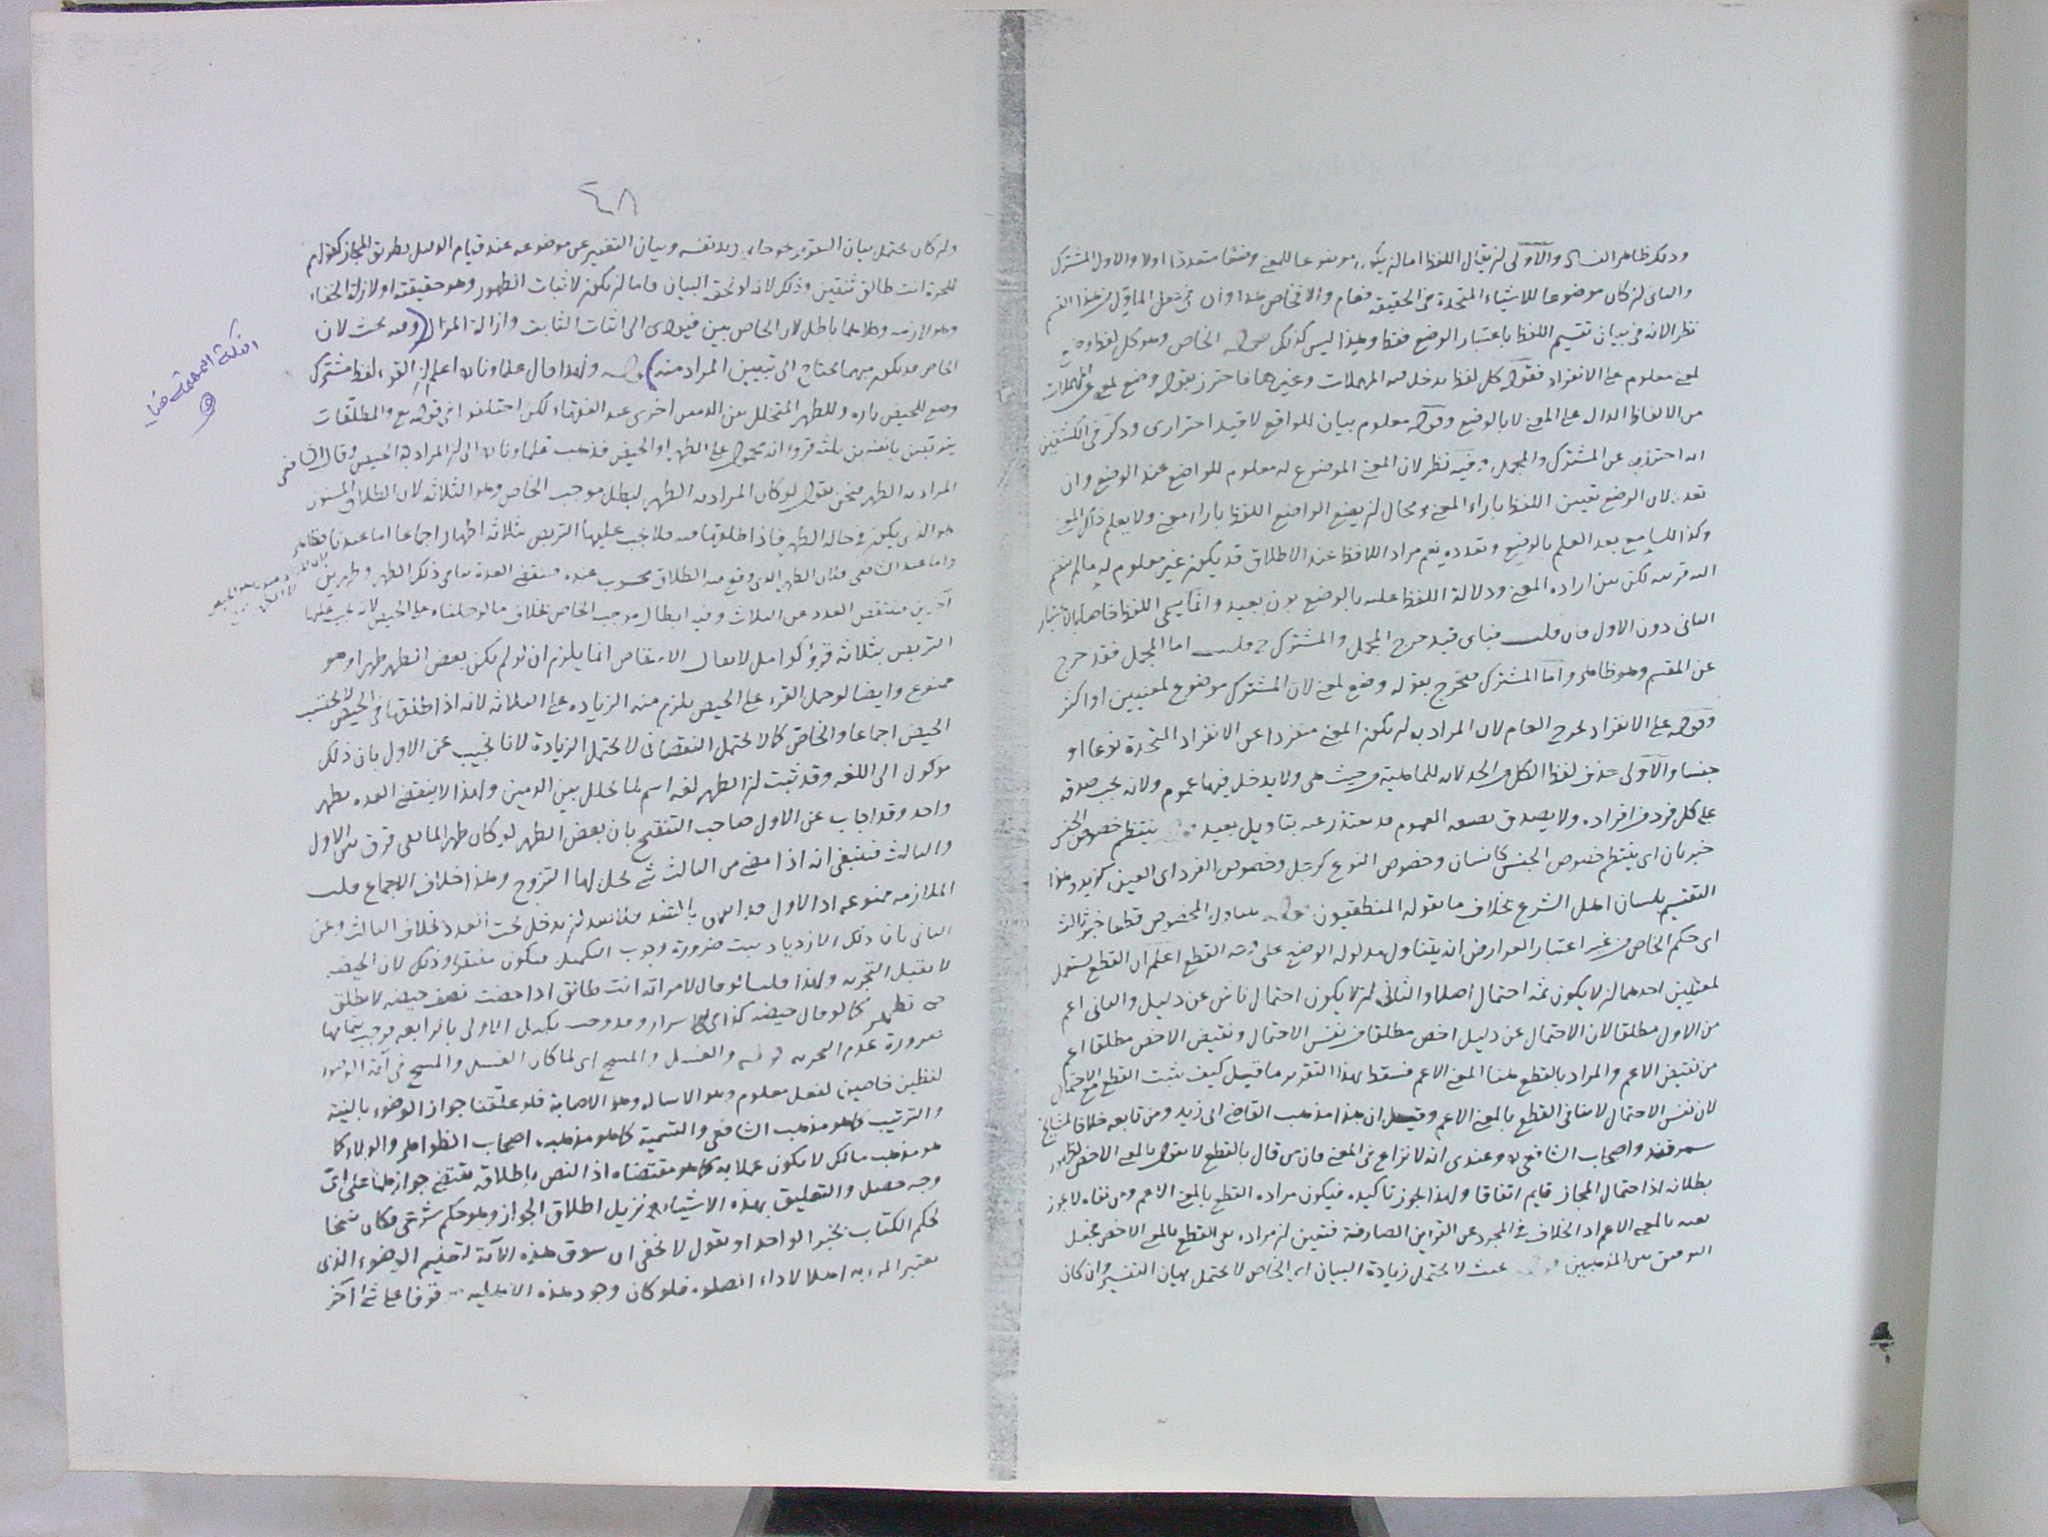 وذلك ظاهر الفساد والأولى ان يقال اللفظ اما ان يكون موضوعا للمعنى وضعا متعددا اولا والاول المشترك
والثاني ان كان موضوعا للاشياء المتحدة في الحقيقة فعام والا فخاص هذا وان في جعل المأول من هذا القسم
نظر الانه في بيان تقسيم اللفظ باعتبار الوضع فقط وهذا ليس كذلك قوله الخاص وهو كل لفظ وضع
لمعنى معلوم على الانفراد فقوله كل لفظ يدخل فيه المهملات وغيرها فاحترز بقوله وضع لمعنى عن المهملات
من الالفاظ الدال على المعنى لا بالوضع وقوله معلوم بيان للواقع لا قيد احترازى وذكر في الكشفين
انه احترز به عن المشترك والمجمل وفيه نظر لان المعنى الموضوع له معلوم للواضع عند الوضع وان
تعدد لان الوضع تعيين اللفظ بازاء المعنى ومحال ان يضع الواضع اللفظ بازاء معنى ولا يعلم ذلك المعنى
وكذا للسامع بعد العلم بالوضع وتعدده نعم مراد اللافظ عند الاطلاق قد يكون غير معلوم له ما لم ينضم
اليه قرينة لكن بين ارادة المعنى ودلالة اللفظ عليه بالوضع بون بعيد وانما يسمى اللفظ خاصا بالاعتبار
الثانى دون الاول فان قلت فباى قيد خرج المجمل والمشترك قلت اما المجمل فقد خرج
عن المقسم وهو ظاهر واما المشترك فخرج بقوله وضع لمعنى لان المشترك موضوع لمعنيين او اكثر
وقوله على الانفراد يخرج العام لان المراد به ان يكون المعنى منفردا عن الافراد المتحدة نوعا او
جنسا والأولى حذف لفظ الكل في الحد لانه للماهية من حيث هى ولا يدخل فيها عموم ولانه يجب صدقه
على كل فرد من افراده ولا يصدق بصفة العموم قد يعتذر عنه بتأويل بعيد ينتظم خصوص الجنس
خبر بان اى ينتظم خصوص الجنس كانسان وخصوص النوع كرجل وخصوص الفرد اى العين كزيد وهذا
التقسيم بلسان اهل الشرع بخلاف ما يقوله المنطقيون يتناول المخصوص قطعا
اى حكم الخاص من غير اعتبار العوارض ان يتناول مدلوله الوضعى على وجه القطع اعلم ان القطع يستعمل
لمعنيين احدهما ان لا يكون ثمه احتمال اصلا والثانى ان لا يكون احتمال ناش عن دليل والثانى اعم
من الاول مطلقا لان الاحتمال عن دليل اخص مطلقا من نفس الاحتمال ونقيض الاخص مطلقا اعم
من نقيض الاعم والمراد بالقطع هنا المعنى الاعم فسقط بهذا التقرير ما قيل كيف يثبت القطع مع الاحتمال
لان نفس الاحتمال لا ينافى القطع بالمعنى الاعم وقيل ان هذا مذهب القاضى ابى زيد ومن تابعه خلافا لمشايخ
سمرقند واصحاب الشافعى وعندى انه لا نزاع في المعنى فان من قال بالقطع لا يقول بالمعنى الاخص لظهور
بطلانه اذ احتمال المجاز قايم اتفاقا ولهذا يجوز تاكيده فيكون مراده القطع بالمعنى الاعم ومن نفاه لا يجوز
نفيه بالمعنى الاعم اذ الخلاف في المجرد عن القراين الصارفة فتعين ان مراده نفى القطع بالمعنى الاخص فيحصل
التوفيق بين المذهبين بحيث لا يحتمل زيادة البيان اى الخاص لا يحتمل بيان التفسير وان كان
٤٨
وان كان يحتمل بيان التقرير نحو جاءنى زيد نفسه وبيان التغيير عن موضوعه عند قيام الدليل بطريق المجاز كقولهم
للحرة انت طالق ثنتين وذلك لانه لو لحقه البيان فاما ان يكون لاثبات الظهور وهو حقيقته او لازالة الخفاء
وهو لازمه وكلاهما باطل لان الخاص بين فيؤدى الى اثبات الثابت وازالة المزال (وفيه بحث لان
الخاص قد يكون مبهما يحتاج الى تبيين المراد منه) ولهذا قال علماونا اعلم ان القرء لفظ مشترك
وضع للحيض تارة وللطهر المتخلل بين الدمين اخرى عند الفقهاء لكن اختلفوا في قوله تع والمطلقات
يتربصن بانفسهن ثلثة قروء انه محمول على الطهر او الحيض فذهب علماونا الى ان المراد به الحيض وقال الشافعى
المراد به الطهر فنحن نقول لو كان المراد به الطهر لبطل موجب الخاص وهو الثلاثه لان الطلاق المسنون
هو الذى يكون في حالة الطهر فاذا طلقها فيه فلا يجب عليها التربص ثلاثة اطهار اجماعا اما عندنا فظاهر
واما عند الشافعى فلان الطهر الذى وقع فيه الطلاق محسوب عنده فتنقضى العدة بباقى ذلك الطهر وطهرين
آخرين فينتقص العدد عن الثلاث وفيه ابطال موجب الخاص بخلاف ما لو حملناه على الحيض لانه يجب عليها
التربص بثلاثة قروء كوامل لا يقال الانتقاص انما يلزم ان لو لم يكن بعض الطهر طهرا وهو
ممنوع وايضا لو حمل القرء على الحيض يلزم منه الزيادة على الثلاثه لانه اذا طلقها في الحيض لا يحتسب
الحيض اجماعا والخاص كما لا يحتمل النقصان لا يحتمل الزيادة لانا نجيب عن الاول بان ذلك
موكول الى اللغه وقد ثبت ان الطهر لغه اسم لما تخلل بين الدمين ولهذا لا ينقضى العده بطهر
واحد وقد اجاب عن الاول صاحب التنقيح بان بعض الطهر لو كان طهرا لما بقى فرق بين الاول
والثالث فينبغى انه اذا مضى من الثالث شئ يحل لها التزوج وهذا خلاف الاجماع قلت
الملازمة ممنوعه اذ الاول يدخل تحت العدد بخلاف الثالث وعن
الثانى بان ذلك الازدياد ثبت ضرورة وجوب التكميل فيكون مغتفرا وذلك لان الحيضه
لا تقبل التجزيه ولهذا قلنا لو قال لامراته انت طالق اذا حضت نصف حيضه لا تطلق
حتى تطهر كما لو قال حيضه كذا في الاسرار وقد وجب تكميل الاولى بالرابعه فوجب بتمامها
ضرورة عدم التجزيه والغسل والمسح اى لما كان الغسل والمسح في آية الوضوء
لفظين خاصين لفعل معلوم وهو الاسالة وهو الاصابة فلو علقنا جواز الوضوء بالنية
والترتيب كما هو مذهب الشافعى والتسمية كما هو مذهب اصحاب الظواهر والولاء كما
هو مذهب مالك لا يكون عملا به كما هو مقتضاه اذ النص باطلاقه يقتضى جوازهما على اى
وجه حصل والتعليق بهذه الاشياء يزيل اطلاق الجواز وهو حكم شرعى فكان نسخا
لحكم الكتاب بخبر الواحد او نقول لا يخفى ان سوق هذه الآية لتعليم الوضوء الذى
يعتبر المرء به اهلا لاداء الصلوة فلو كان وجود هذه الاهلية موقوفا على شئ آخر